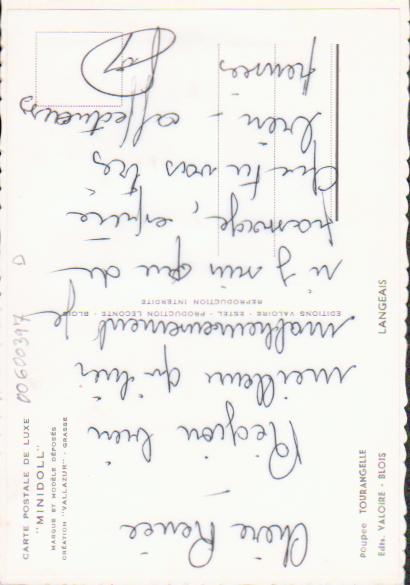 Chère Renée
Région bien
meilleure qu'hier
malheureusement je
n'y suis que de
passage, espère
que tu vas très
bien - affectueuses
pensées
CARTE POSTALE DE LUXE
"MINIDOLL"
MARQUE ET MODÈLE DÉPOSÉS
CRÉATION "VALLAZUR" - GRASSE
00600397 D
EDITIONS VALOIRE - ESTEL - PRODUCTION LECONTE - BLOIS
REPRODUCTION INTERDITE
Poupée TOURANGELLE
LANGEAIS
Edts. VALOIRE - BLOIS